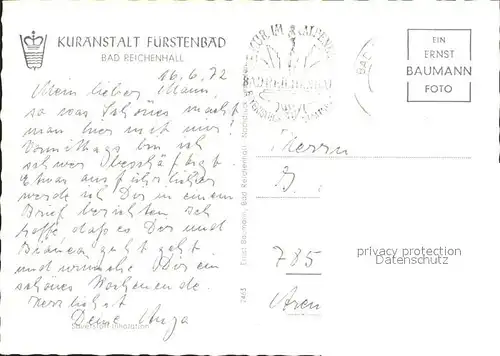 KURANSTALT FÜRSTENBAD
BAD REICHENHALL
16.6.72
Mein lieber Mann,
so was Schönes macht
man hier mit mir!
Vormittags bin ich
schwer beschäftigt.
Etwas ausführlicher
werde ich Dir in einem
Brief berichten. Ich
hoffe daß es Dir und
Bianca geht gut
und wünsche Dir ein
schönes Wochenende.
Herzlichst
Deine
Sauerstoff-Inhalation
KUR IM ALPEN
BAD REICHENHALL
EIN
ERNST
BAUMANN
FOTO
Ernst Baumann, Bad Reichenhall
2465
Herrn
B.
785
privacy protection
Datenschutz